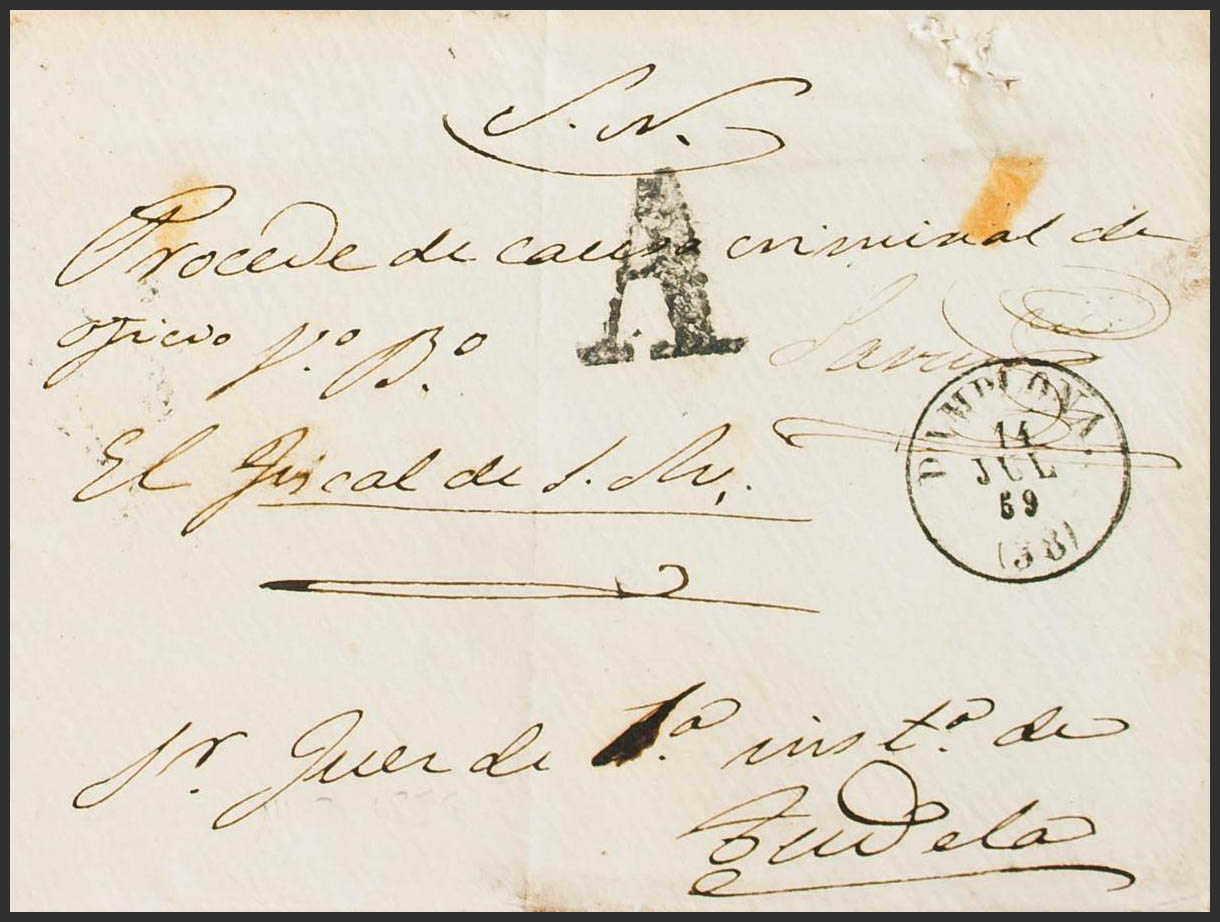 S. N.
A
Procede de causa criminal de
oficio V.º B.º
El Fiscal de S. M.
PAMPLONA.
14
JUL
59
(38)
Sr. Juez de 1.ª inst.ª de
Tudela